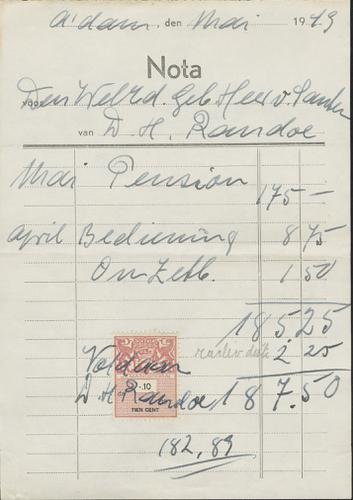 A'dam, den Mai 1949
Nota
voor Den WelEd. Geb. Heer v. Santen
van D. H. Randoe
Mai Pension 175 —
April Bediening 8 75
Ontb. 1 50
185.25
2 25
Voldaan
D. H. Randoe 187.50
.10
TIEN CENT
182,89